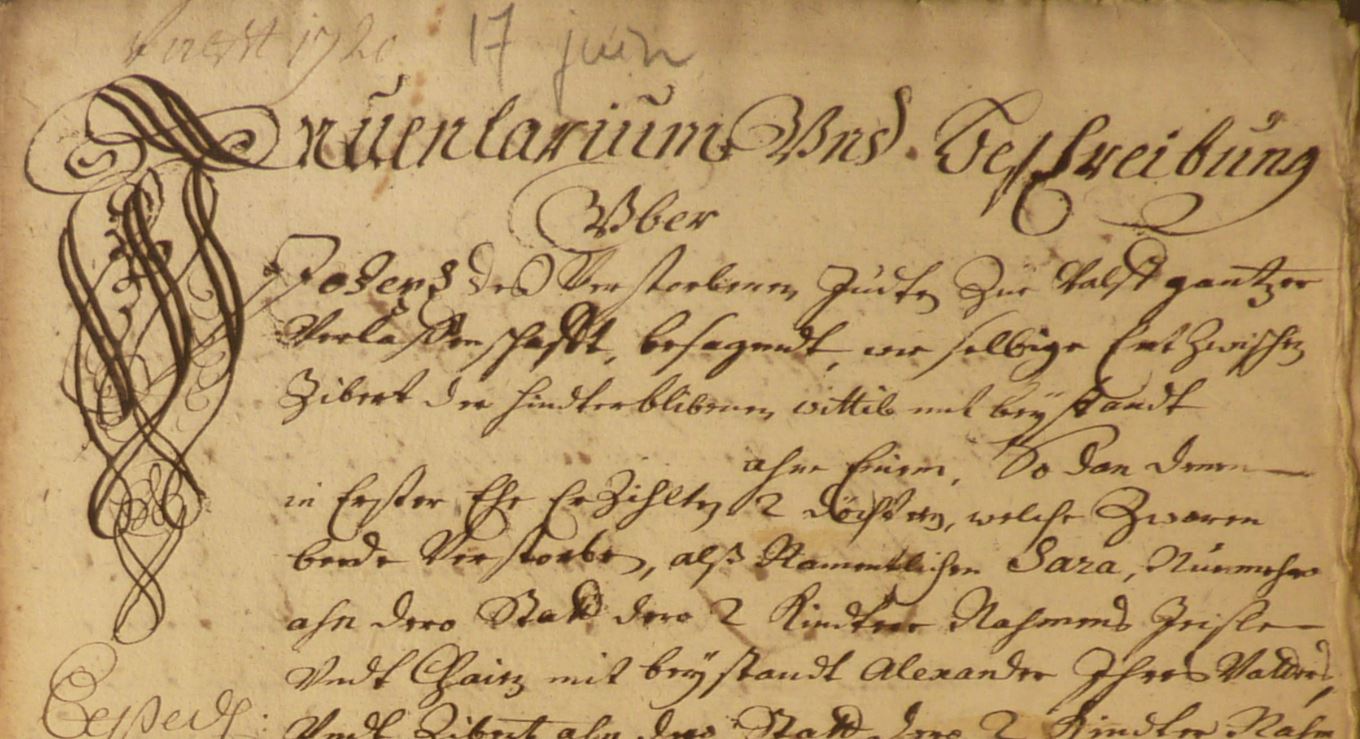 1720 17 juin
Inuentarium Vnd Beschreibung
Vber
des Verstorbenen Juden Zue gantzer
Verlassenschafft, besagendt, wie selbige Entzwischen
Zibert der hindterblibenen wittib mit beystandt
ahn Einem, So dan denen
in Erster Ehe Erzihlten 2 döchtern, welche Zwaren
beede Verstorben, alß Namentlichen Sara, Nunmehro
ahn dero Statt dero 2 Kindter Nahmens
Vndt Chaim mit beystandt Alexander Ihres Vatters,
Vndt Zibert ahn dero Statt dero 2 Kindter Nahm